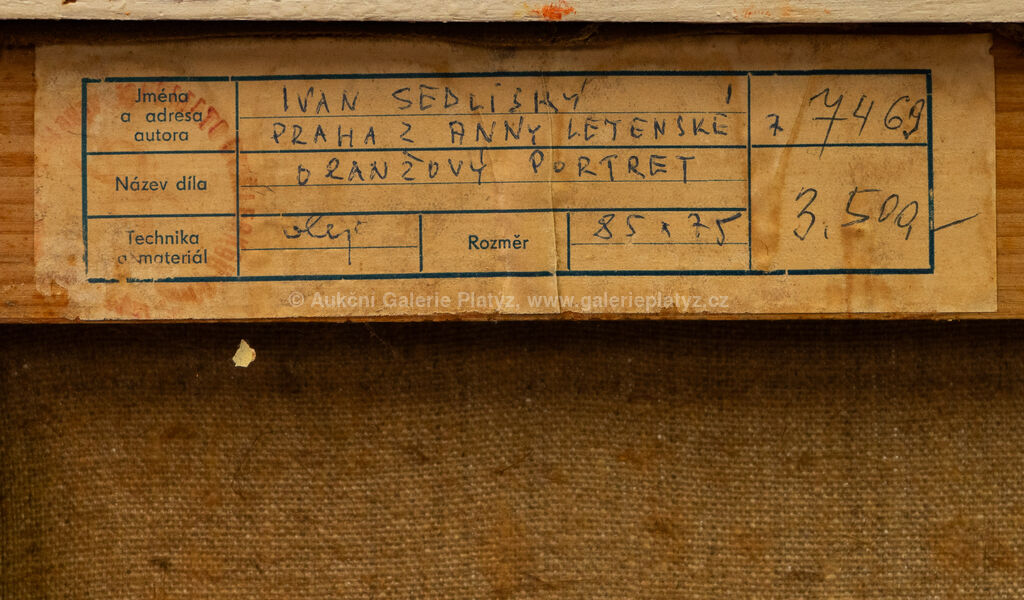 Jména a adresa autora
IVAN SEDLISKÝ
PRAHA 2 ANNY LETENSKÉ
7469
Název díla
ORANŽOVÝ PORTRET
Technika a materiál
olej
Rozměr
85 x 75
3.500,-
© Aukční Galerie Platýz, www.galerieplatyz.cz